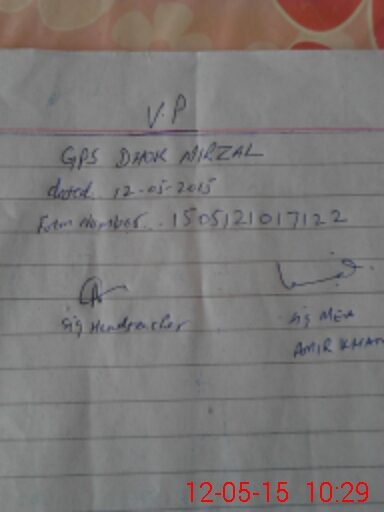 V.P
GPS DHOK MIRZAL
dated. 12-05-2015
Form Number.. 1505121017122
Sig Headteacher
Sig MEA
AMIR KHAN
12-05-15 10:29